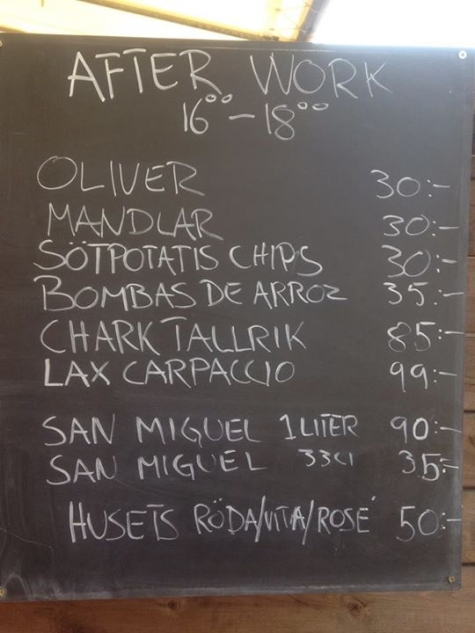 AFTER WORK
16⁰⁰-18⁰⁰
OLIVER 30:-
MANDLAR 30:-
SÖTPOTATIS CHIPS 30:-
BOMBAS DE ARROZ 35:-
CHARK TALLRIK 85:-
LAX CARPACCIO 99:-
SAN MIGUEL 1 LITER 90:-
SAN MIGUEL 33cl 35:-
HUSETS RÖDA/VITA/ROSÉ 50:-